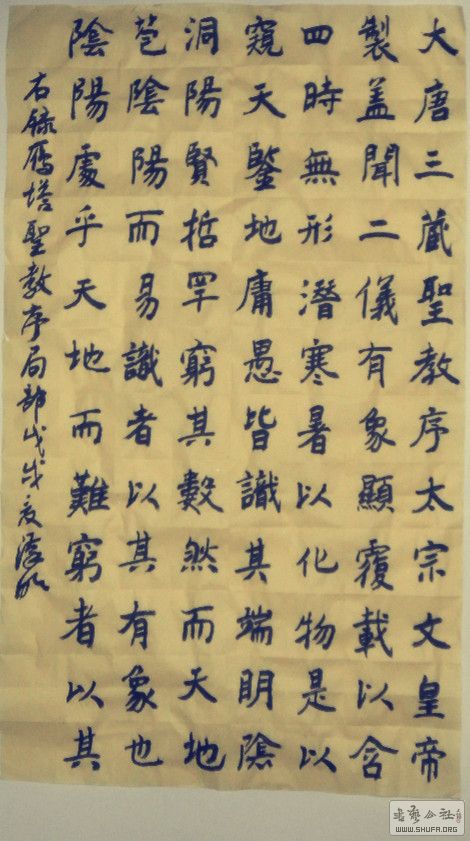 大唐三藏聖教序太宗文皇帝
製盖聞二儀有象顯覆載以含
四時無形潛寒暑以化物是以
窺天鑒地庸愚皆識其端明陰
洞陽賢哲罕窮其數然而天地
苞陰陽而易識者以其有象也
陰陽處乎天地而難窮者以其
右錄雁塔聖教序局部戊戌夏
公社
WWW.SHUFA.ORG